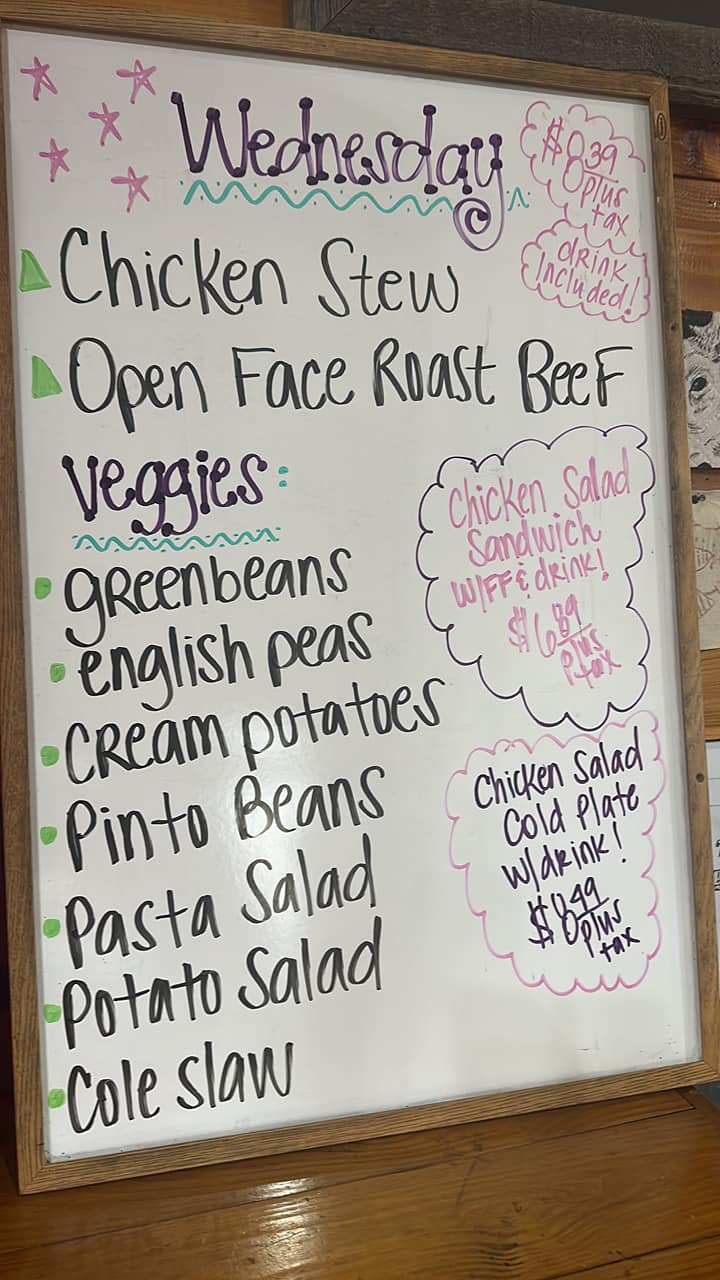 Wednesday
$8.39
plus
tax
drink
Included!
Chicken Stew
Open Face Roast Beef
Veggies:
greenbeans
english peas
Cream potatoes
Pinto Beans
Pasta Salad
Potato Salad
Cole slaw
Chicken Salad
Sandwich
W/FF & drink!
$6.89
plus
tax
Chicken Salad
Cold Plate
W/drink!
$8.49
plus
tax